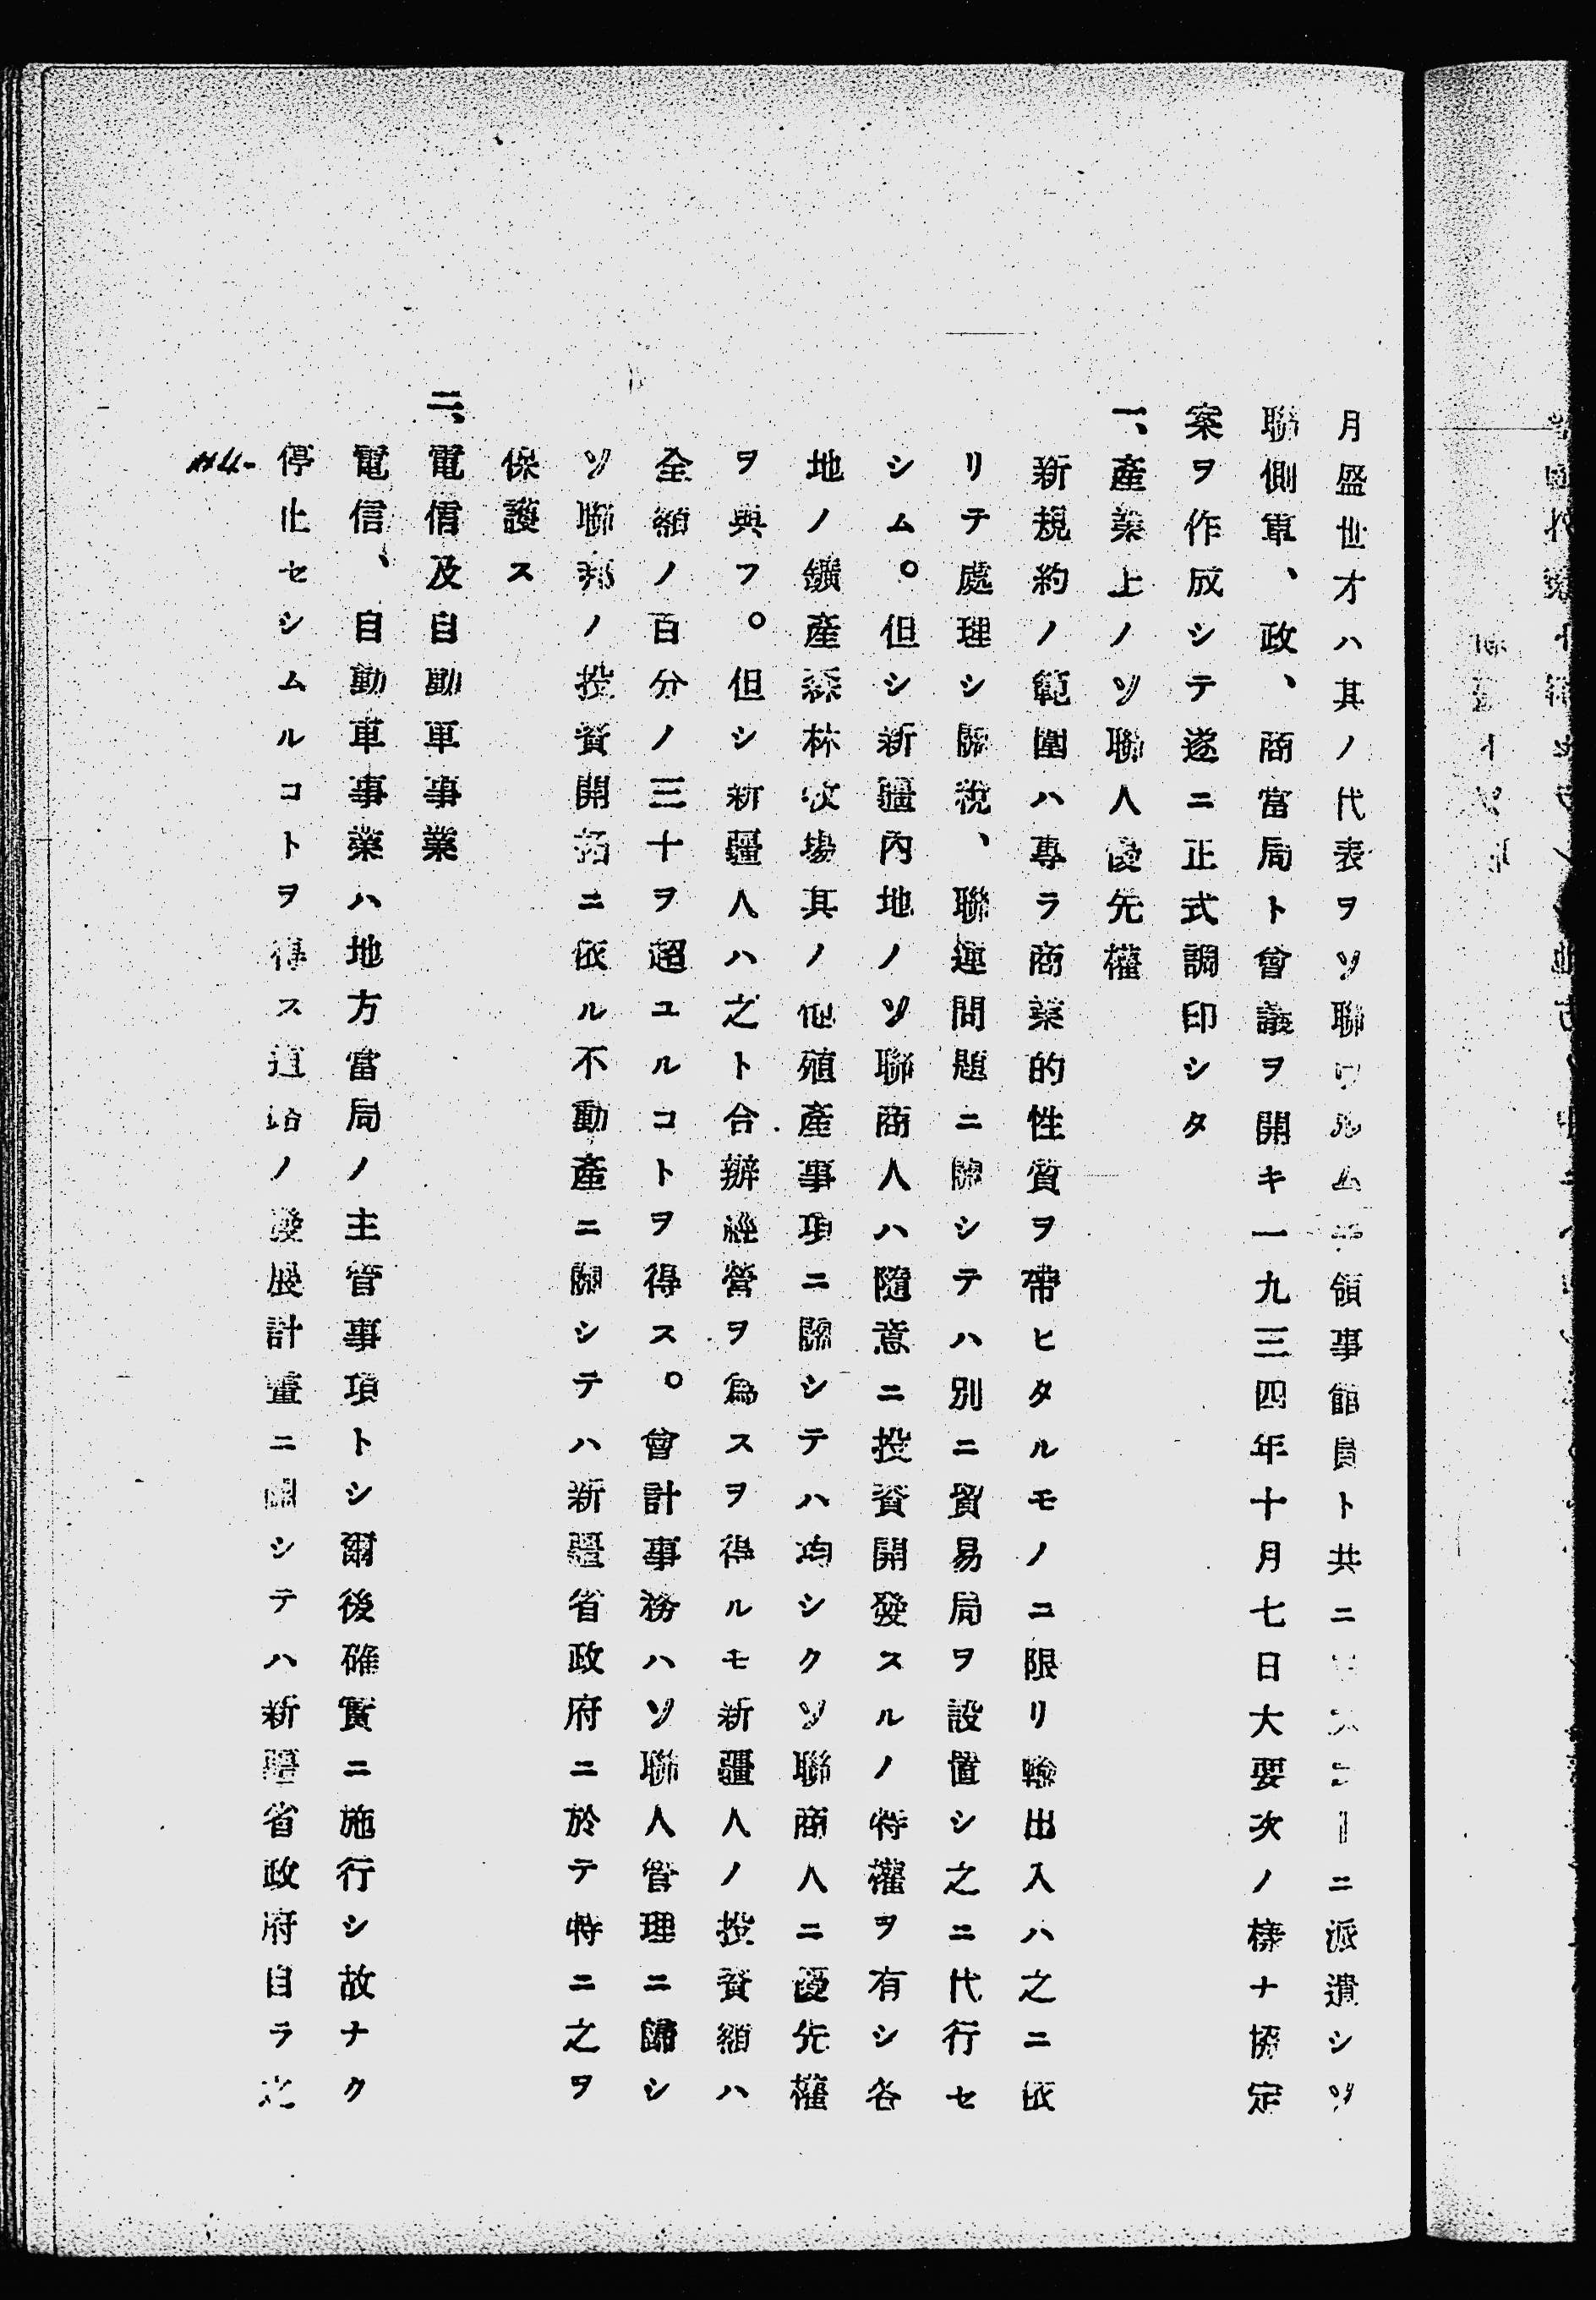 月盛世才ハ其ノ代表ヲソ聯ウルムチ領事館員ト共ニモスコーニ派遣シソ
聯側軍、政、商當局ト會議ヲ開キ一九三四年十月七日大要次ノ樣ナ協定
案ヲ作成シテ遂ニ正式調印シタ
一、產業上ノソ聯人優先權
新規約ノ範圍ハ專ラ商業的性質ヲ帶ヒタルモノニ限リ輸出入ハ之ニ依
リテ處理シ關稅、聯運問題ニ關シテハ別ニ貿易局ヲ設置シ之ニ代行セ
シム。但シ新疆內地ノソ聯商人ハ隨意ニ投資開發スルノ特權ヲ有シ各
地ノ鑛產森林牧場其ノ他殖產事項ニ關シテハ均シクソ聯商人ニ優先權
ヲ與フ。但シ新疆人ハ之ト合辦經營ヲ爲スヲ得ルモ新疆人ノ投資額ハ
全額ノ百分ノ三十ヲ超ユルコトヲ得ス。會計事務ハソ聯人管理ニ歸シ
ソ聯邦ノ投資開拓ニ依ル不動產ニ關シテハ新疆省政府ニ於テ特ニ之ヲ
保護ス
二、電信及自動車事業
電信、自動車事業ハ地方當局ノ主管事項トシ爾後確實ニ施行シ故ナク
停止セシムルコトヲ得ス道路ノ發展計畫ニ關シテハ新疆省政府自ラ之